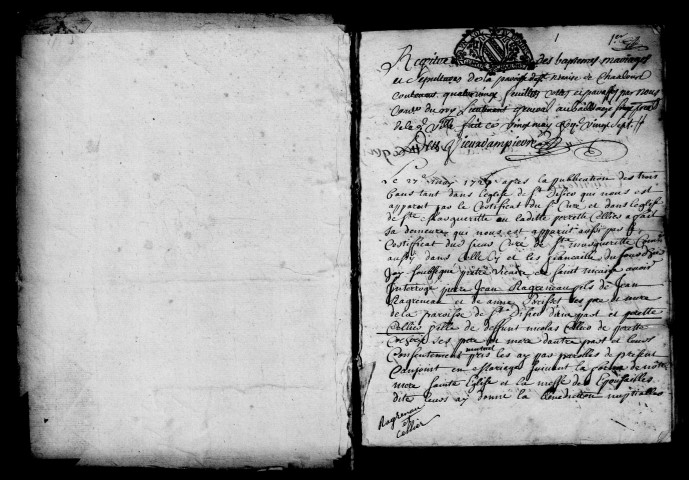 1
1er
Registre des baptemes mariages
et sepultures de la paroisse de st nicaise de Chaalons
contenant quatrevingt feuillets cottés et paraphés par nous
Lieutenant general au bailliage
de la ville fait ce vingt mars vingt sept
Dieu dampierre
Le 27e may 1727 apres la publication des trois
bans tant dans leglise de st Disiés qui nous est
apparut par le Certificat du sr Curé et dans leglise
de ste Margueritte ou laditte perrette Cellies a fait
sa demeure qui nous est apparut aussi par le
Certificat du sieur Curé de ste margueritte Comme
aussy dans Celle Cy et les fiancailles du jour dhier
Jay soubsigné prêtre Vicaire de Saint nicaise avoir
Interrogé Jean Ragreneau fils de Jean
Ragreneau et de anne Brisset ses pere et mere
de la paroisse de st Disies dune part et perette
Cellies fille de deffunt nicolas Cellies de perette
ses pere et mere dautre part et leurs
Consentement mutuel pris les ay par parolles de present
Conjoint en Mariage suivant la forme de notre
mere Sainte Eglise et la messe des Epousailles
dite leurs ay donné la benediction nuptialles
Ragreneau
et
Cellier